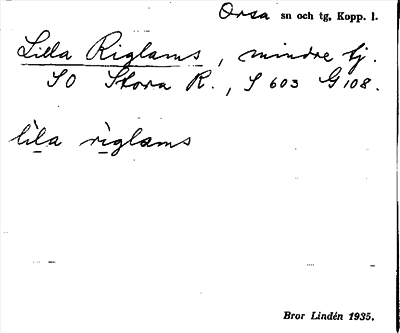 Orsa sn och tg, Kopp. l.
Lilla Riglams, mindre tj.
SO Stora R., S 603 G 108.
lìla rìglams
Bror Lindén 1935.